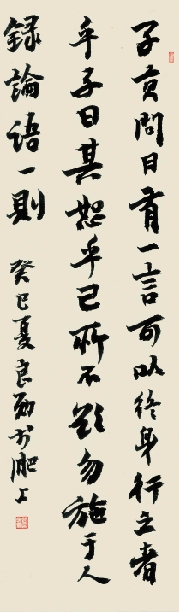 子贡問曰有一言可以終身行之者
乎子曰其恕乎己所不欲勿施于人
録論語一則 癸巳夏良勋书於肥上